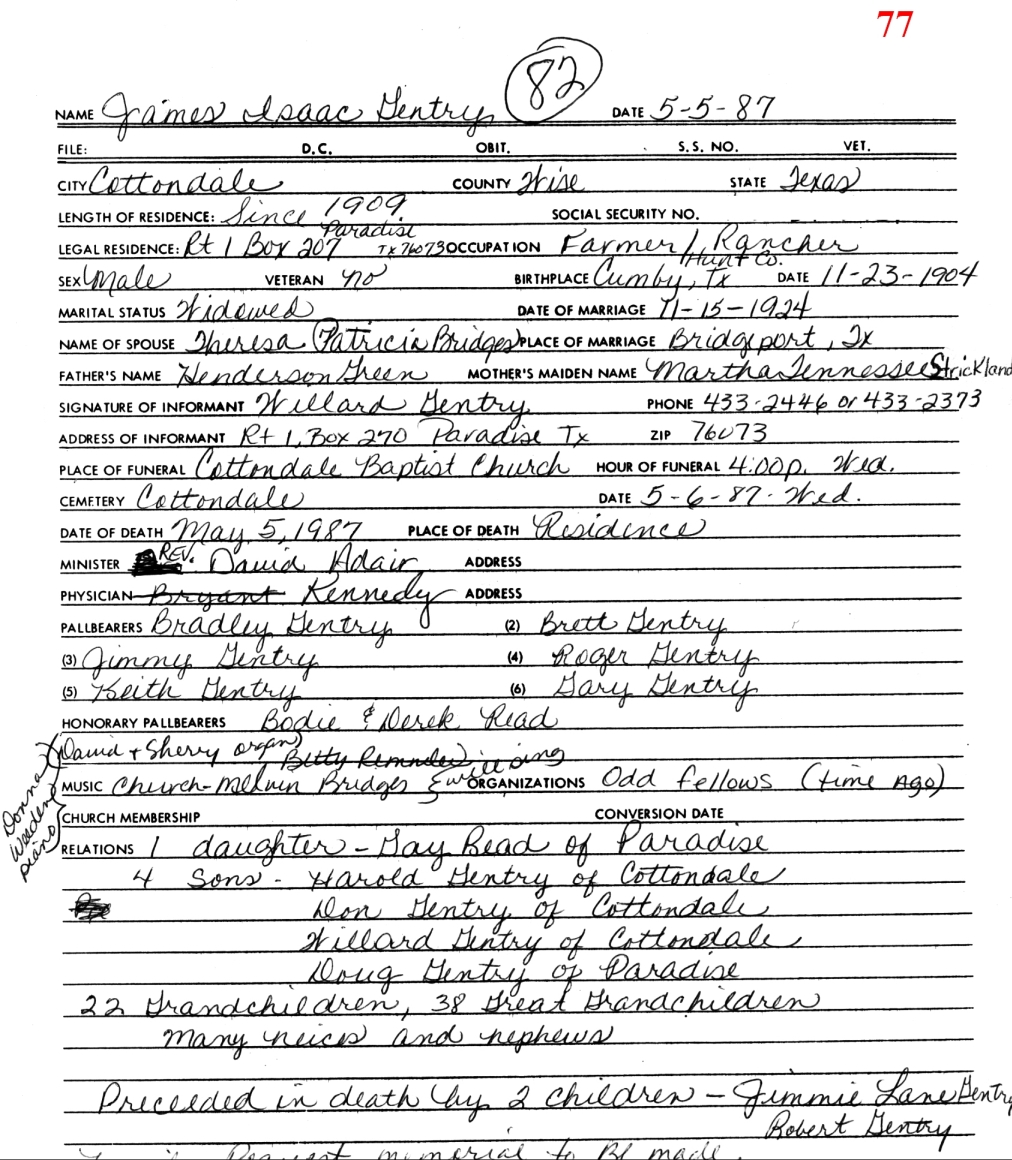 77
82
NAME James Isaac Gentry DATE 5-5-87
FILE: D.C. OBIT. S.S. NO. VET.
CITY Cottondale COUNTY Wise STATE Texas
LENGTH OF RESIDENCE: Since 1909 SOCIAL SECURITY NO.
LEGAL RESIDENCE: Rt 1 Box 207 Paradise Tx 76073 OCCUPATION Farmer / Rancher
SEX Male VETERAN no BIRTHPLACE Cumby, Tx Hunt Co. DATE 11-23-1904
MARITAL STATUS Widowed DATE OF MARRIAGE 11-15-1924
NAME OF SPOUSE Theresa (Patricia Bridges) PLACE OF MARRIAGE Bridgeport, Tx
FATHER'S NAME Henderson Green MOTHER'S MAIDEN NAME Martha Tennessee Strickland
SIGNATURE OF INFORMANT Willard Gentry PHONE 433-2446 or 433-2373
ADDRESS OF INFORMANT Rt 1, Box 270 Paradise Tx ZIP 76073
PLACE OF FUNERAL Cottondale Baptist Church HOUR OF FUNERAL 4:00p. Wed.
CEMETERY Cottondale DATE 5-6-87- Wed.
DATE OF DEATH May 5, 1987 PLACE OF DEATH Residence
MINISTER REV. David Adair ADDRESS
PHYSICIAN Bryant Kennedy ADDRESS
PALLBEARERS Bradley Gentry (2) Brett Gentry
(3) Jimmy Gentry (4) Roger Gentry
(5) Keith Gentry (6) Gary Gentry
HONORARY PALLBEARERS Bodie & Derek Read
David + Sherry organ Betty will sing
Donna Weeden piano
MUSIC Church-Melvin Bridges ORGANIZATIONS Odd fellows (time ago)
CHURCH MEMBERSHIP CONVERSION DATE
RELATIONS 1 daughter - Gay Read of Paradise
4 Sons - Harold Gentry of Cottondale
Don Gentry of Cottondale
Willard Gentry of Cottondale
Doug Gentry of Paradise
22 Grandchildren, 38 Great Grandchildren
Many neices and nephews
Preceeded in death by 2 children - Jimmie Lane Gentry
Robert Gentry
Request memorial to Be made